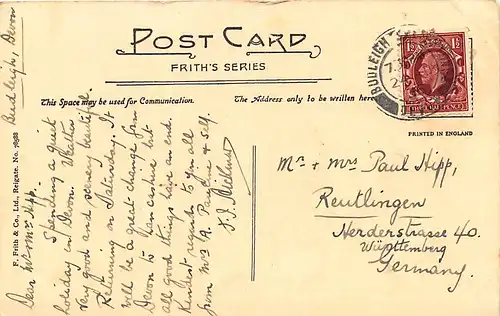 POST CARD
FRITH'S SERIES
This Space may be used for Communication.
The Address only to be written here
BUDLEIGH
1½ 1½
PRINTED IN ENGLAND
F. Frith & Co., Ltd., Reigate. No.
Budleigh, Devon
Dear Mr & Mrs Hipp.
Spending a quiet
holiday in Devon. Weather
very good and scenery beautiful.
Returning on Saturday. It
will be a great change from
Devon to Lancashire but
all good things have an end.
Kindest regards to you all
from Mrs A. & self.
Mr + Mrs Paul Hipp,
Reutlingen
Herderstrasse 40.
Württemberg
Germany.